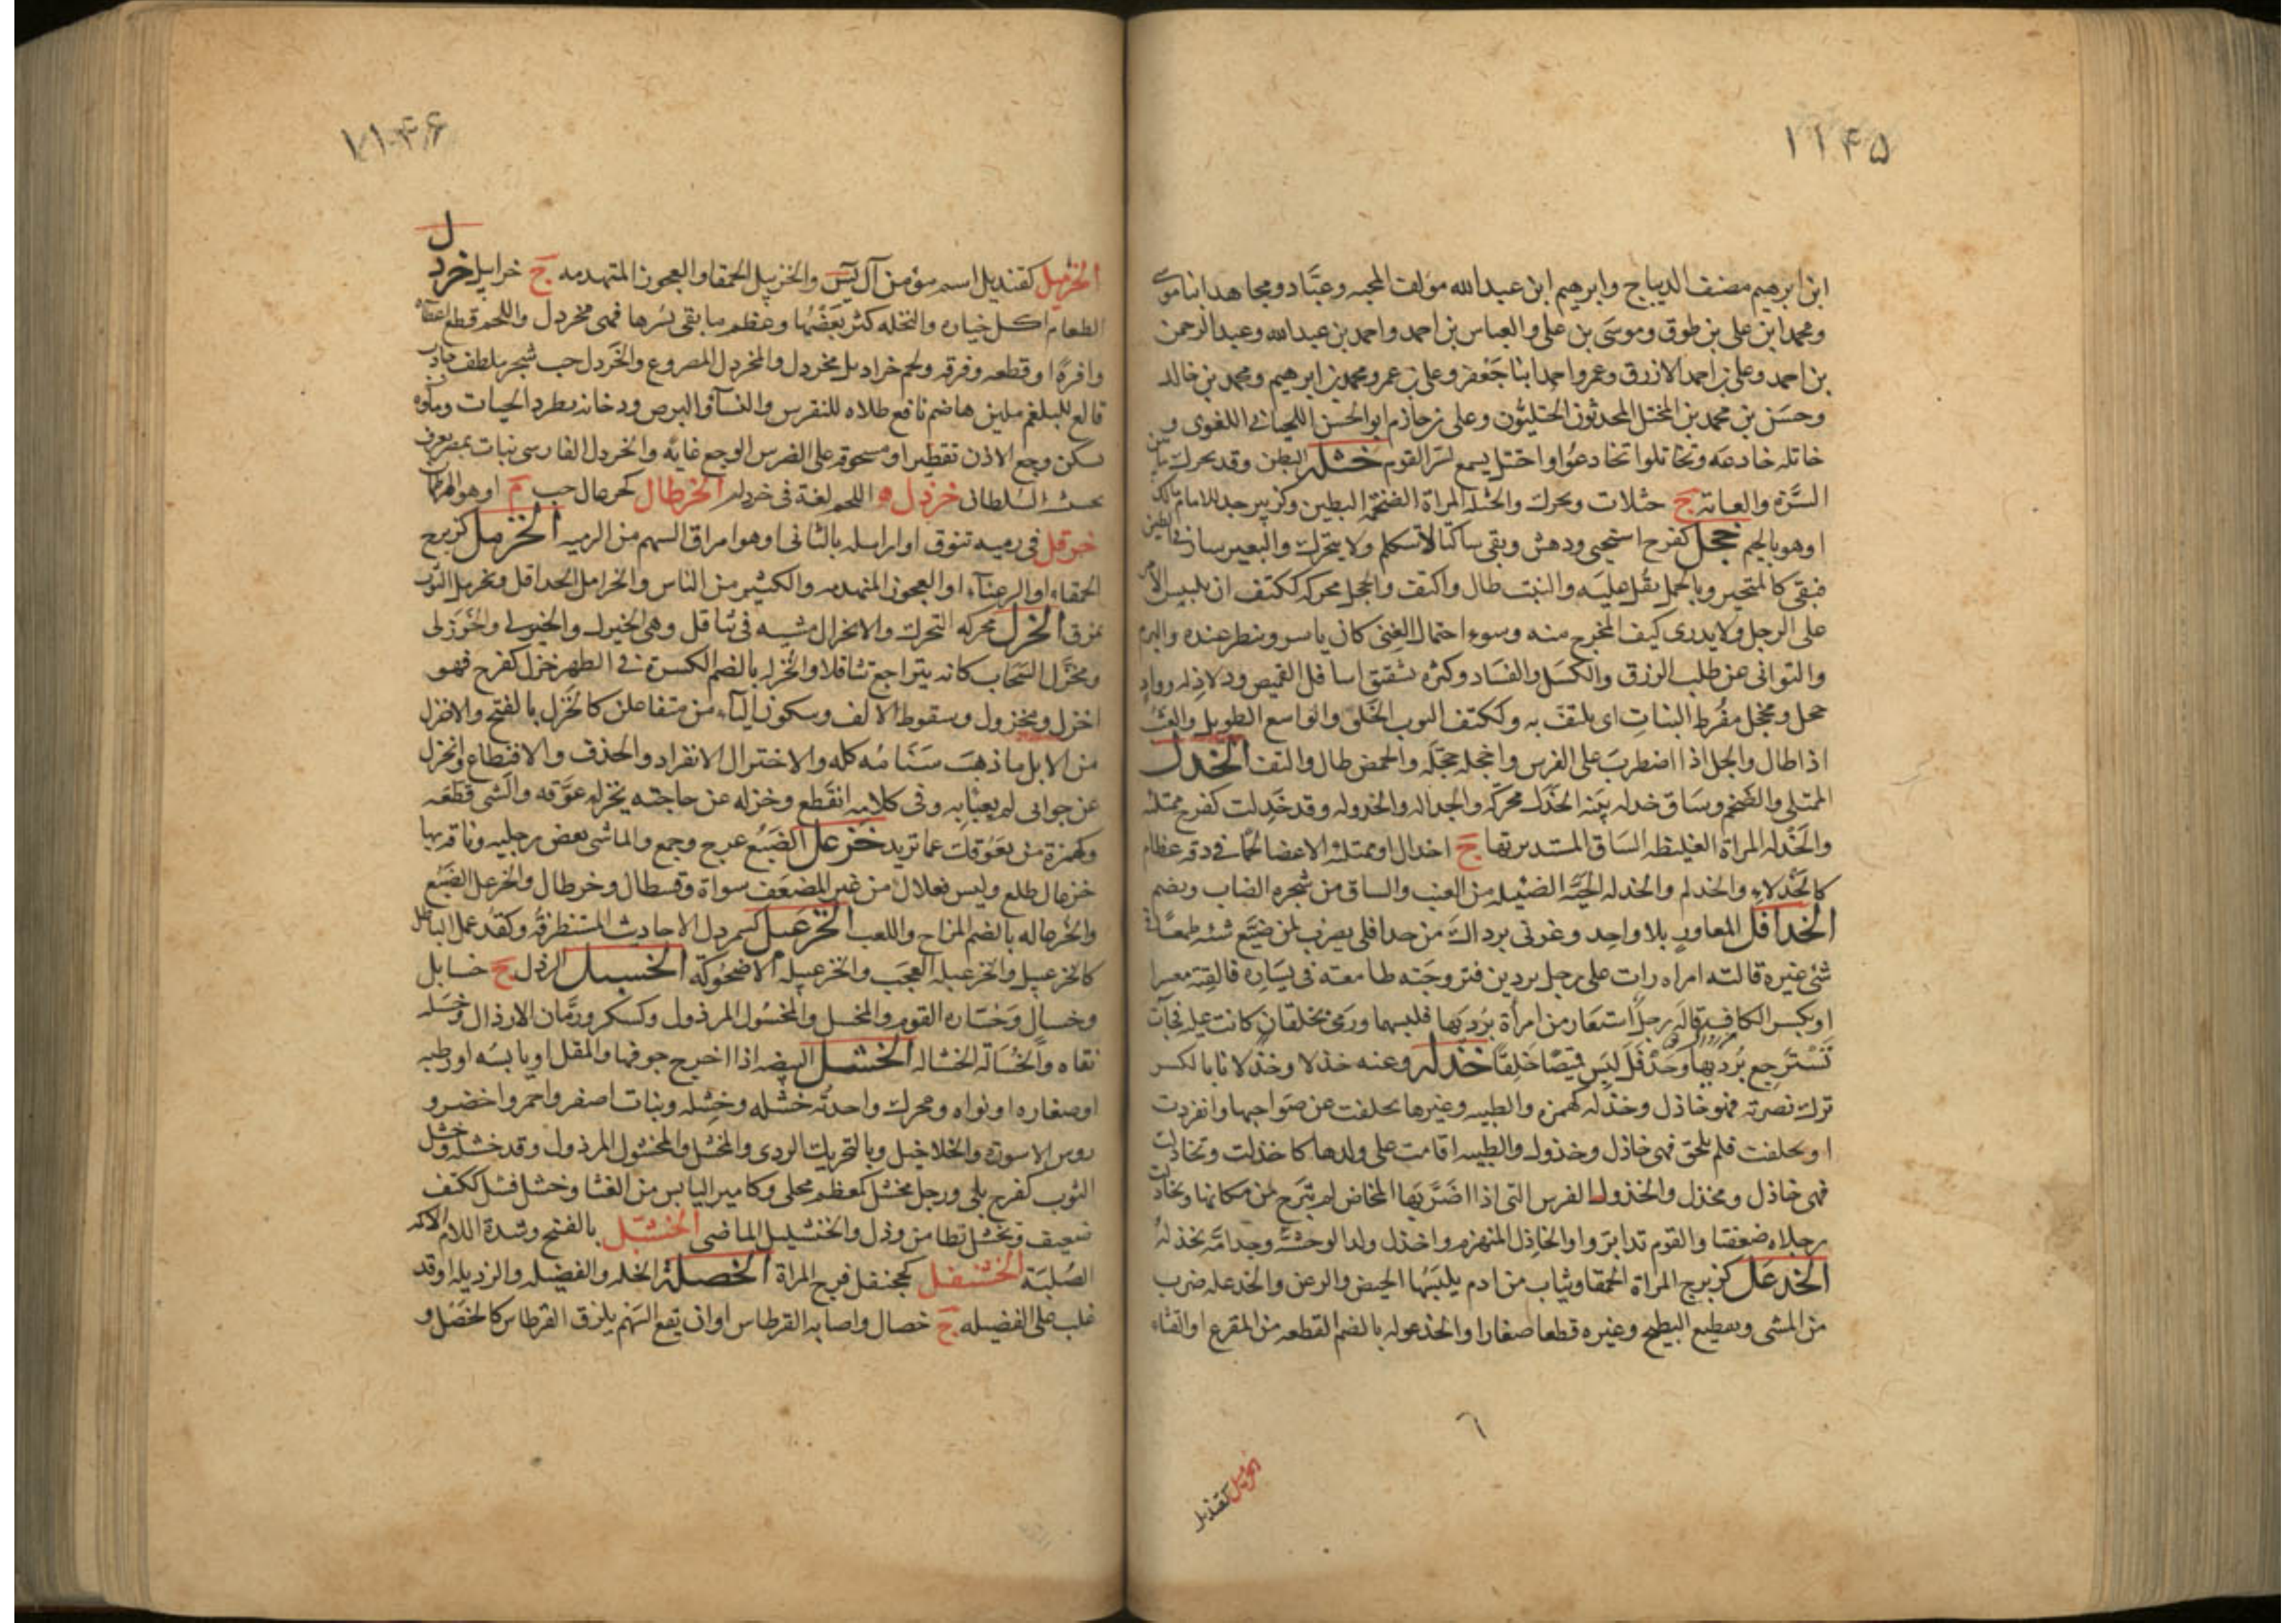 ۱۱۴۵
ابن ابرهيم مصنف الديباج وابرهيم ابن عبدالله مؤلف المحبه وعبّاد ومجاهد ابنا موسى
ومحمد ابن على بن طوق وموسَى بن على والعباس بن احمد واحمد بن عبدالله وعبدالرحمن
بن احمد وعلى بن احمد الازرق وعمر واحمد ابنا جَعْفر وعلى بن عمر ومحمد بن ابرهيم ومحمد بن خالد
وحسَن بن محمد بن المختل المحدثون الختليّون وعلى بن حازم ابو الحسن اللحيانى اللغوى و
خاتله خادعَه وتخاتلوا تخادعُوا واختل يسمع لسرّ القوم خثلة البطن وقد يحرك ما بين
السُّرة والعانة ج خثلات ويحرك والخثله المراة الضخمة البطين وكزبير جد للامام مالك
اوهو بالجيم خجل كفرح استحيى ودهش وبقى ساكتا لا يتكلم ولا يتحرك والبعير سار فى الطين
فبقى كالمتحير وبالحمل ثقل عليَه والنبت طال والتف والخجل محركه ككتف ان يلبس الامر
على الرجل ولا يدرى كيف المخرج منه وسوء احتمال الغِنى كان ياسر ويبطر عنده والبرم
والتوانى عن طلب الرزق والكسَل والفسَاد وكثره تشقق اسافل القميص وذلاذله وواد
خجل ومخجل مفُرط النباتِ اى ملتف به وككتف الثوب الخَلق والواسع الطويل والعُشب
اذا طال والجل اذا اضطربَ على الفرس واخجله خجّلَه والحمض طال والتف الخدل
الممتلى والضخم وسَاق خدله بيّنه الخَدَل محرّكه والخداله والخدوله وقد خَدِلت كفرح ممتلئه
والخَدْله المراة الغيلظه السَاق المستديرتها ج اخدال او ممتلئه الاعضا لحما فى دقه عظام
كالخَدْلاءِ والخدلم والخدله الحبّه الضئيله من العنب والساق من شجره الضاب ويضم
الخدافل المعاوز بلا واحِد وغرنى برداك من خدافلى يضرب لمن ضيّع شئه طمعًا فى
شئ غيره قالته امراه رات على رجل بردين فتزوجَته طامعته فى يسَاره فالفِته معسرا
او بكسر الكاف قاله رجلٌ استعَار من امرأة بُردَيها فلبسهما ورَمى بخلقان كانت عليه فجآت
تَسْتَرجع بُرديها وخَدْفَل لبَس قميصًا خَلِقًا خذله وعنه خذلا وخذلانا بالكسر
ترك نصرته فهو خاذل وخذله كهمزه والظبيه وغيرها تخلفت عن صَواحبها وانفردت
او تخلفت فلم تلحق فهى خاذل وخذول والظبيه اقامت على ولدها كاخذلت وتخاذلت
فهى خاذل ومخذل والخذول الفرس التى اذا اضَرَّ بَها المخاض لم تبَرح من مكانها وتخاذلت
رجلاه ضعفتا والقوم تدابرَوا والخاذِل المنهزم واخذل ولدا لوحشيّه وجد امّه تخذله
الخذعل كزبرج المراة الحمقا وثياب من ادم يلبَسُها الحيض والرعن والخذعله ضرب
من المشى وتقطيع البطيخ وغيره قطعا صغارا والخذعوله بالضم القطعه من القرع او القثاء
٦
الخزبيل كقنديل
۱۱۴۶
ل
الخزبيل كقنديل اسم مؤمن آل يٓسٓ والخزبيل الحمقا والعجوز المتهدمه ج خرابيل خردل
الطعام اكل خياره والنخله كثر نفَضُها وعظم ما بقى بُسرها فهى مخردل واللحم قطع اعضاه
وافرةً او قطعه وفرقه ولحم خراديل مخردل والمخردل المصروع والخَردل حب شجر ملطف جاذب
قالع للبلغم ملين هاضم نافع طلاه للنقرس والنسآ والبرص ودخانه يطرد الحيات وماؤه
يسكن وجع الاذن تقطيرا ومسحوقه على الضرس الوجع غايَه والخردل الفارسى نبات بمصر يعرف
بحشيشة السُلطانى خرذل اللحم لغة فى خردله الخرطال كخزعال حب م او هو الهرطمان
خرقل فى رميه تنوق او ارسله بالتانى او هو امراق السهم من الرميه الخرمل كزبرج
الحمقاء او الرعنآء او العجوز المتهدمه والكثير من الناس والخرامل الخدافل وتخرمل الثوب
تمزق الخزل محركه التحرك والانخزال مشيه فى تثاقل وهى الخيزل والخيزلى والخَوزلى
وتخزَّل السَحَاب كانه يتراجع تثاقلا والخُزله بالضم الكسرة فى الظهر خزل كفرح فهو
اخزل ومخزول وسقوط الالف وسكون التآء من متفاعلن كالخَزل بالفتح والاخزل
من الابل ما ذهبَ سنَامُه كله والاختزال الانفراد والحذف والاقتطاع وانخزل
عن جوابى لم يعبَا به وفى كلامه انقطع وخزله عن حاجته يخزله عوّقه والشى قطعَه
وكهمزة من يعَوّقك عما تريد خزعل الضبَع عرج وخمع والماشى نفض رجليه وناقه بها
خزعال ظلع وليس فعلال من غير المضعَف سواة وقسطال وخرطال والخزعل الضبَع
والخزعاله بالضم المزاح واللعب الخزعبل كشمردل الاحاديث المستظرفه وكقذعمل الباطل
كالخزعبيل والخزعبله العجَب والخزعبيله الاضحُوكة الخسيل الرذل ج خسايل
وخسال وخسّاره القوم والمخسل والمخسُول المرذول وكسكر ورمّان الارذال وخسله
نفاه والخُسَالَة الخشاله الخشل البيضه اذا اخرج جوفها والمقل او يابسُه او رطبه
او صغاره او نواه ومحرك واحدتُه خشَله وخَشله ونبات اصفر واحمر واخضر و
روس الاسورة والخلاخيل وبالتحريك الردى والمخشل والمخشول المرذول وقد خشله وخشل
الثوب كفرح بلى ورجل مخشل كمعظم محلى وكامير اليابس من الغثا وخشل فشل ككتف
ضعيف وتخشل تطامن وذل والخنشيل الماضى الخشبّل بالفتح وشدة اللام الاكمه
الصُلبَة الخشنفل كجحنفل فرج المراة الخصلة الخله والفضيله والرذيله او قد
غلب على الفضيله ج خصال واصابه القرطاس او ان يقع السَهم بلزق القرطاس كالخَصْل و